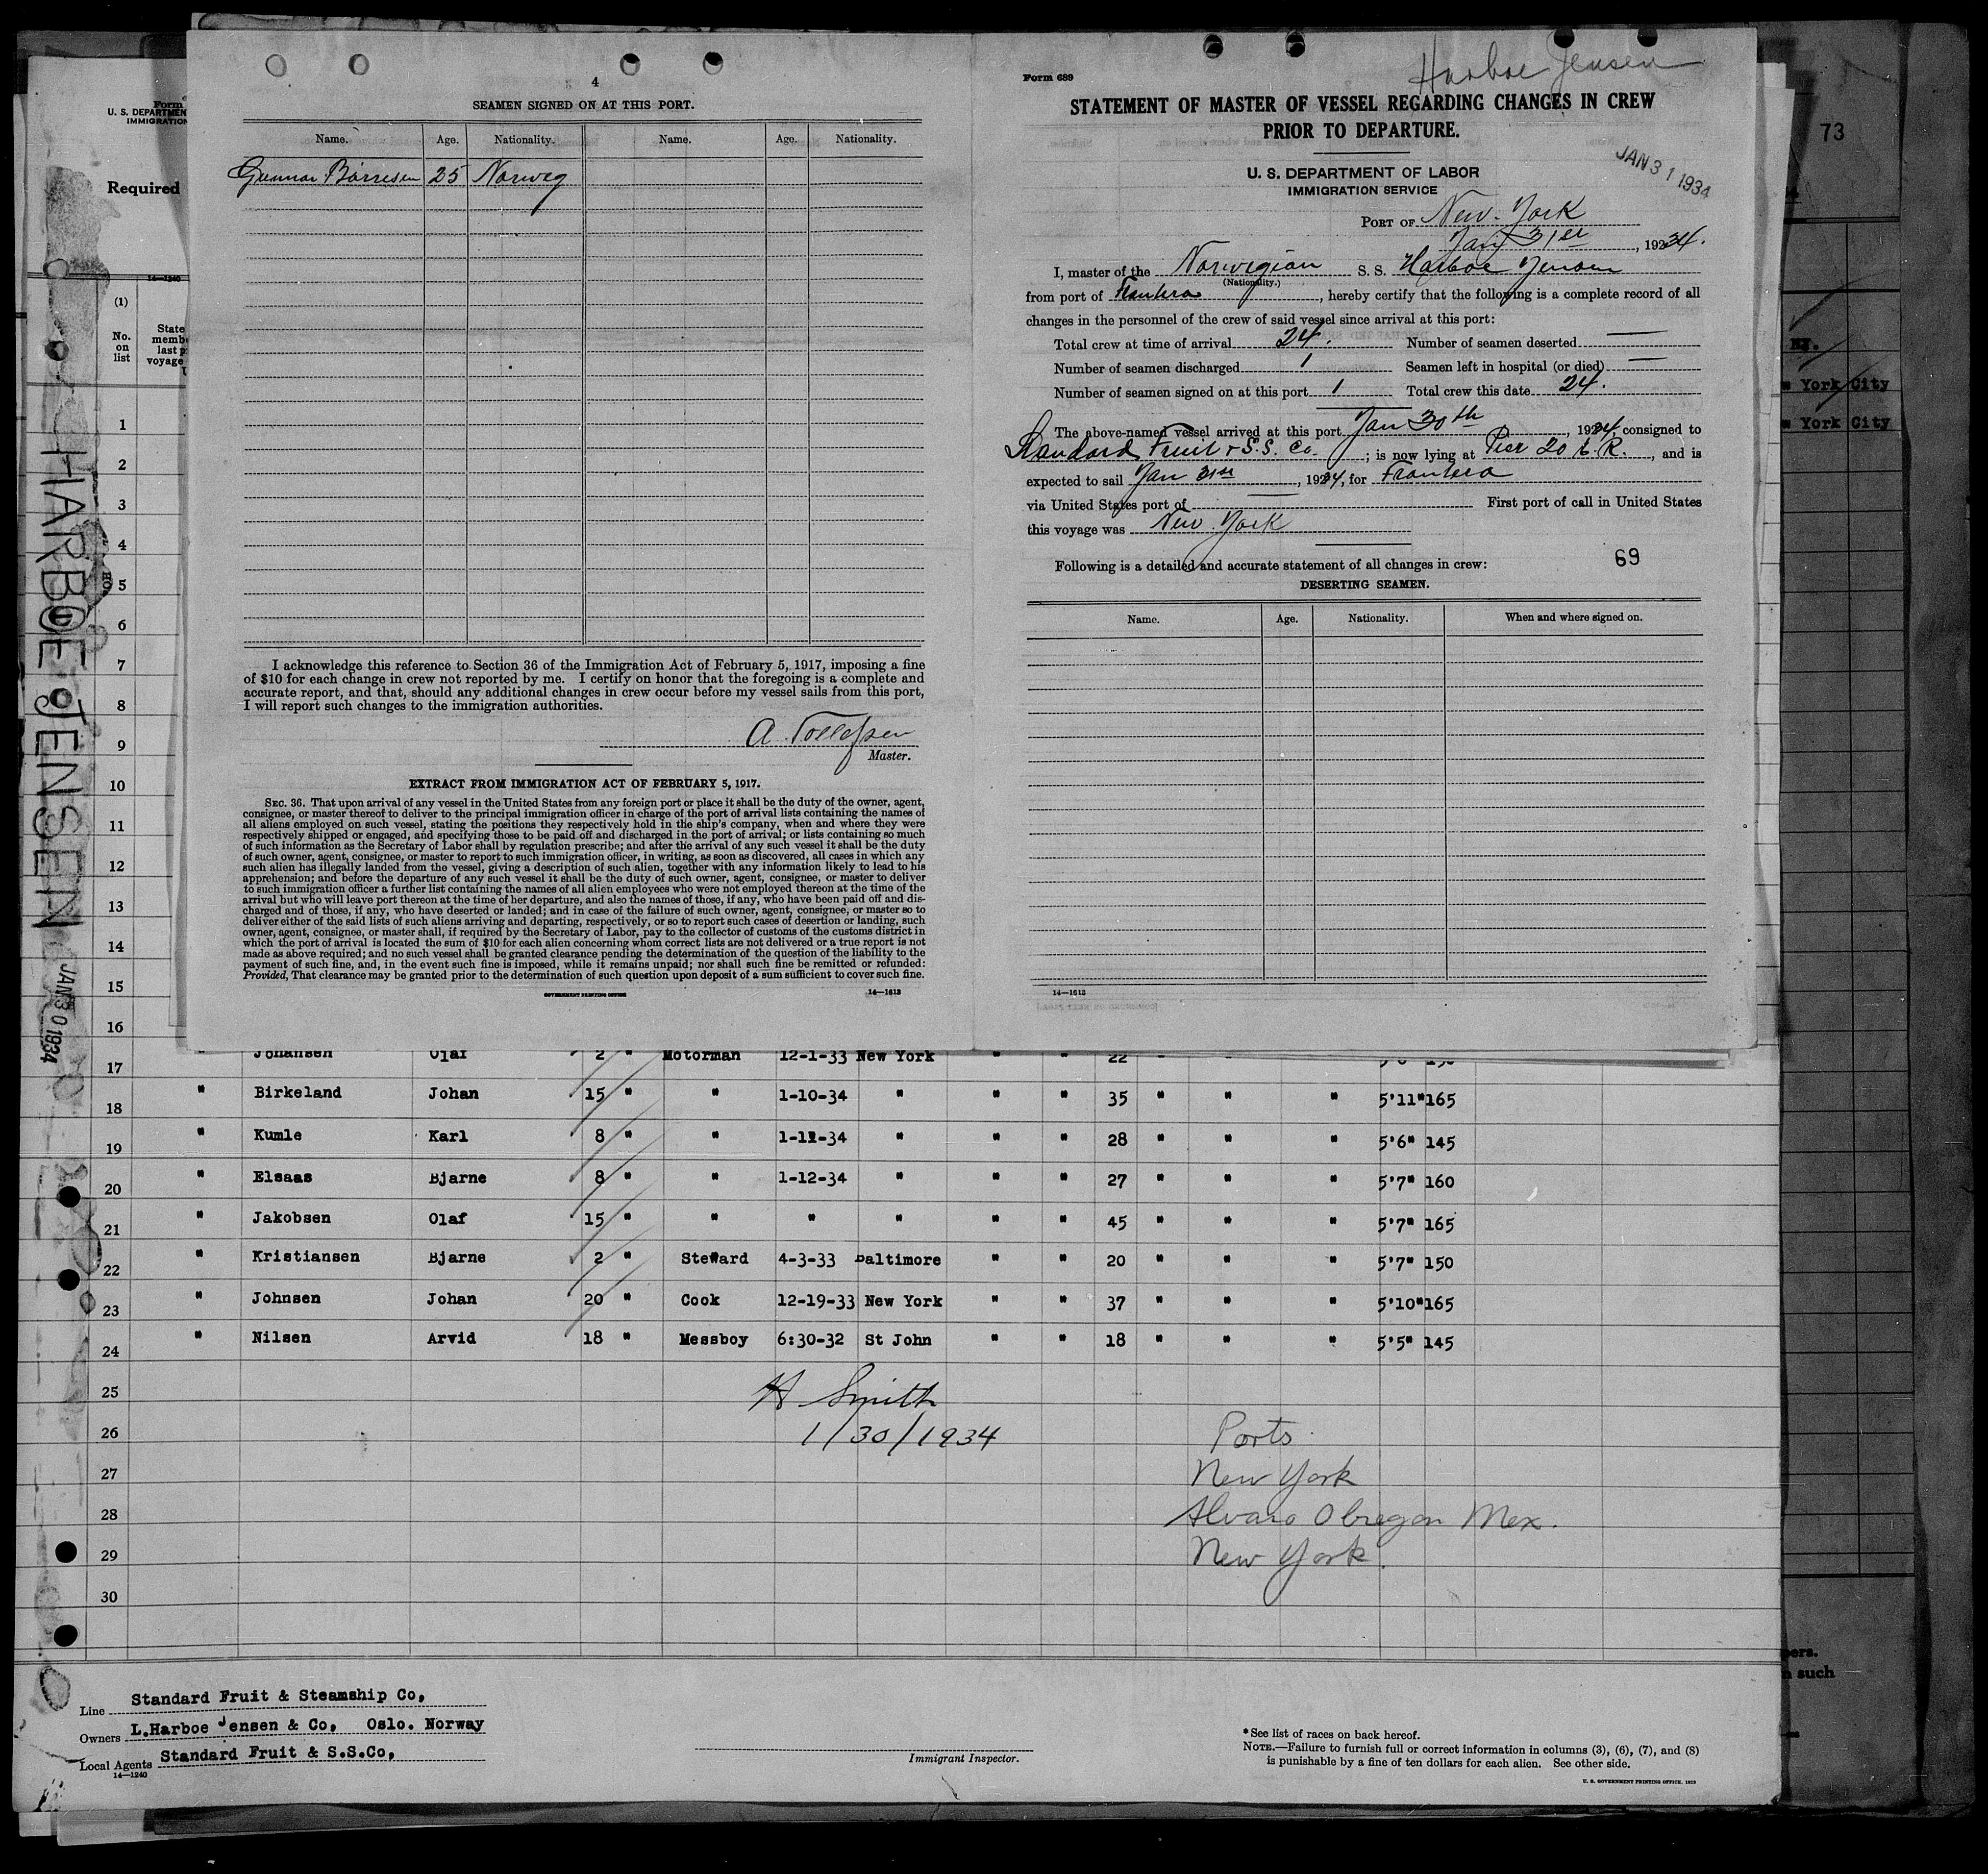 4
SEAMEN SIGNED ON AT THIS PORT.
Name. Age. Nationality. Name. Age. Nationality.
Gunnar Børresen 25 Norweg
I acknowledge this reference to Section 36 of the Immigration Act of February 5, 1917, imposing a fine
of $10 for each change in crew not reported by me. I certify on honor that the foregoing is a complete and
accurate report, and that, should any additional changes in crew occur before my vessel sails from this port,
I will report such changes to the immigration authorities.
A. Tollefsen
Master.
EXTRACT FROM IMMIGRATION ACT OF FEBRUARY 5, 1917.
SEC. 36. That upon arrival of any vessel in the United States from any foreign port or place it shall be the duty of the owner, agent,
consignee, or master thereof to deliver to the principal immigration officer in charge of the port of arrival lists containing the names of
all aliens employed on such vessel, stating the positions they respectively hold in the ship's company, when and where they were
respectively shipped or engaged, and specifying those to be paid off and discharged in the port of arrival; or lists containing so much
of such information as the Secretary of Labor shall by regulation prescribe; and after the arrival of any such vessel it shall be the duty
of such owner, agent, consignee, or master to report to such immigration officer, in writing, as soon as discovered, all cases in which any
such alien has illegally landed from the vessel, giving a description of such alien, together with any information likely to lead to his
apprehension; and before the departure of any such vessel it shall be the duty of such owner, agent, consignee, or master to deliver
to such immigration officer a further list containing the names of all alien employees who were not employed thereon at the time of the
arrival but who will leave port thereon at the time of her departure, and also the names of those, if any, who have been paid off and dis-
charged and of those, if any, who have deserted or landed; and in case of the failure of such owner, agent, consignee, or master so to
deliver either of the said lists of such aliens arriving and departing, respectively, or so to report such cases of desertion or landing, such
owner, agent, consignee, or master shall, if required by the Secretary of Labor, pay to the collector of customs of the customs district in
which the port of arrival is located the sum of $10 for each alien concerning whom correct lists are not delivered or a true report is not
made as above required; and no such vessel shall be granted clearance pending the determination of the question of the liability to the
payment of such fine, and, in the event such fine is imposed, while it remains unpaid; nor shall such fine be remitted or refunded:
Provided, That clearance may be granted prior to the determination of such question upon deposit of a sum sufficient to cover such fine.
GOVERNMENT PRINTING OFFICE 14—1613
Harboe Jensen
Form 689
STATEMENT OF MASTER OF VESSEL REGARDING CHANGES IN CREW
PRIOR TO DEPARTURE.
JAN 31 1934
U. S. DEPARTMENT OF LABOR
IMMIGRATION SERVICE
PORT OF New-York
Jany 31st, 1934.
I, master of the Norwegian S. S. Harboe Jensen
(Nationality.)
from port of Frontera, hereby certify that the following is a complete record of all
changes in the personnel of the crew of said vessel since arrival at this port:
Total crew at time of arrival 24. Number of seamen deserted —
Number of seamen discharged 1 Seamen left in hospital (or died) —
Number of seamen signed on at this port 1 Total crew this date 24.
The above-named vessel arrived at this port Jan 30th, 1934, consigned to
Standard Fruit & S.S. Co.; is now lying at Pier 20 E.R., and is
expected to sail Jan 31st, 1934, for Frontera
via United States port of — First port of call in United States
this voyage was New York
Following is a detailed and accurate statement of all changes in crew:
69
DESERTING SEAMEN.
Name. Age. Nationality. When and where signed on.
14—1613
73
NJ.
York City
York City
Form
U. S. DEPARTMEN
IMMIGRATION
Required
14—1240
(1)
No. on list
State
memb
last p
voyage
HARBOE JENSEN
JAN 30 1934
1
2
3
4
5
6
7
8
9
10
11
12
13
14
15
16
17 " Johansen Olaf 2 " Motorman 12-1-33 New York " " 22
18 " Birkeland Johan 15 " " 1-10-34 " " " 35 " " " 5'11" 165
19 " Kumle Karl 8 " " 1-12-34 " " " 28 " " " 5'6" 145
20 " Elsaas Bjarne 8 " " 1-12-34 " " " 27 " " " 5'7" 160
21 " Jakobsen Olaf 15 " " " " " " 45 " " " 5'7" 165
22 " Kristiansen Bjarne 2 " Steward 4-3-33 Baltimore " " 20 " " " 5'7" 150
23 " Johnsen Johan 20 " Cook 12-19-33 New York " " 37 " " " 5'10" 165
24 " Nilsen Arvid 18 " Messboy 6:30-32 St John " " 18 " " " 5'5" 145
25
26
27
28
29
30
H Smith
1/30/1934
Ports
New York
Alvaro Obregon Mex.
New York.
Line Standard Fruit & Steamship Co,
Owners L.Harboe Jensen & Co, Oslo. Norway
Local Agents Standard Fruit & S.S.Co,
14—1240
Immigrant Inspector.
*See list of races on back hereof.
NOTE.—Failure to furnish full or correct information in columns (3), (6), (7), and (8)
is punishable by a fine of ten dollars for each alien. See other side.
U. S. GOVERNMENT PRINTING OFFICE
such